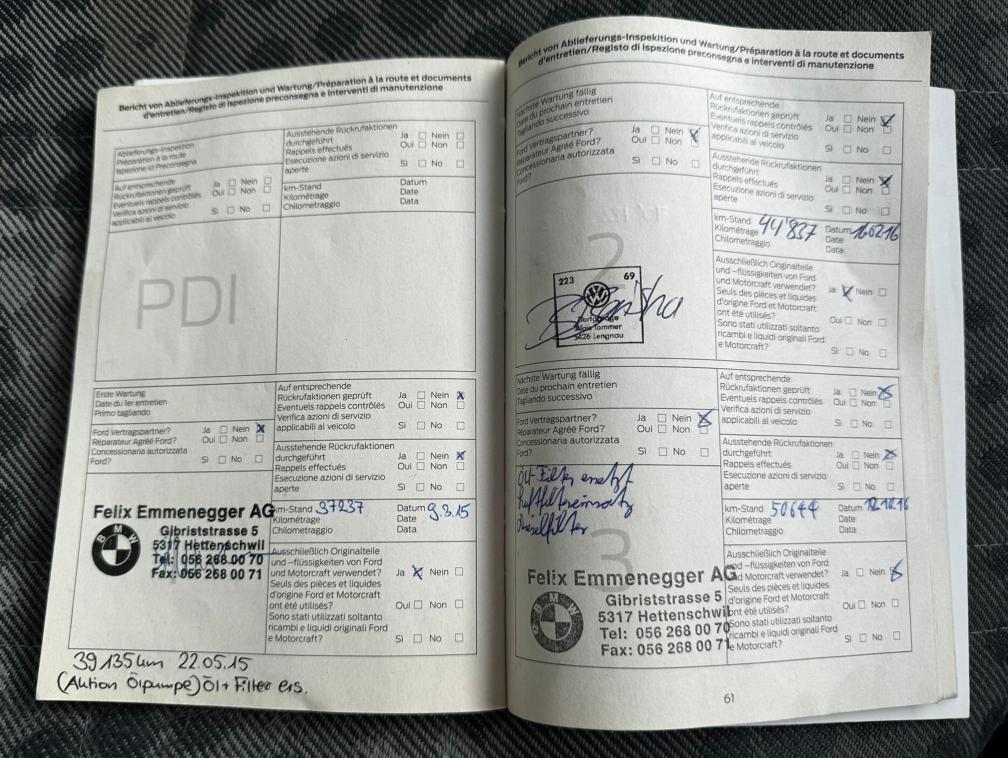 Bericht von Ablieferungs-Inspektion und Wartung/Préparation à la route et documents
d'entretien/Registo di ispezione preconsegna e interventi di manutenzione
Ablieferungs-Inspektion
Préparation à la route
Ispezione ici Preconsegna
Auf entsprechende
Rückrufaktionen geprüft Ja Nein
Eventuels rappels contrôlés Oui Non
Verifica azioni di servizio
applicabili al veicolo Sì No
Ausstehende Rückrufaktionen
durchgeführt Ja Nein
Rappels effectués Oui Non
Esecuzione azioni di servizio
aperte Sì No
km-Stand Datum
Kilométrage Date
Chilometraggio Data
PDI
Erste Wartung
Date du 1er entretien
Primo tagliando
Ford Vertragspartner? Ja Nein
Réparateur Agréé Ford? Oui Non
Concessionaria autorizzata
Ford? Sì No
Auf entsprechende
Rückrufaktionen geprüft Ja Nein
Eventuels rappels contrôlés Oui Non
Verifica azioni di servizio
applicabili al veicolo Sì No
Ausstehende Rückrufaktionen
durchgeführt Ja Nein
Rappels effectués Oui Non
Esecuzione azioni di servizio
aperte Sì No
km-Stand 37237 Datum 9.3.15
Kilométrage Date
Chilometraggio Data
Felix Emmenegger AG
BMW
Gibriststrasse 5
5317 Hettenschwil
Tel: 056 268 00 70
Fax: 056 268 00 71
Ausschließlich Originalteile
und -flüssigkeiten von Ford
und Motorcraft verwendet? Ja Nein
Seuls des pièces et liquides
d'origine Ford et Motorcraft
ont été utilisés? Oui Non
Sono stati utilizzati soltanto
ricambi e liquidi originali Ford
e Motorcraft? Sì No
39135km 22.05.15
(Aktion Ölpumpe) Öl + Filter ers.
Bericht von Ablieferungs-Inspektion und Wartung/Préparation à la route et documents
d'entretien/Registo di ispezione preconsegna e interventi di manutenzione
Nächste Wartung fällig
Date du prochain entretien
Tagliando successivo
Ford Vertragspartner? Ja Nein
Réparateur Agréé Ford? Oui Non
Concessionaria autorizzata
Ford? Sì No
Auf entsprechende
Rückrufaktionen geprüft Ja Nein
Eventuels rappels contrôlés Oui Non
Verifica azioni di servizio
applicabili al veicolo Sì No
Ausstehende Rückrufaktionen
durchgeführt Ja Nein
Rappels effectués Oui Non
Esecuzione azioni di servizio
aperte Sì No
km-Stand 44'837 Datum 16.02.16
Kilométrage Date
Chilometraggio Data
2
223 69
Dorfgarage
Alois Tommer
5426 Lengnau
Ausschließlich Originalteile
und -flüssigkeiten von Ford
und Motorcraft verwendet? Ja Nein
Seuls des pièces et liquides
d'origine Ford et Motorcraft
ont été utilisés? Oui Non
Sono stati utilizzati soltanto
ricambi e liquidi originali Ford
e Motorcraft? Sì No
Nächste Wartung fällig
Date du prochain entretien
Tagliando successivo
Ford Vertragspartner? Ja Nein
Réparateur Agréé Ford? Oui Non
Concessionaria autorizzata
Ford? Sì No
Auf entsprechende
Rückrufaktionen geprüft Ja Nein
Eventuels rappels contrôlés Oui Non
Verifica azioni di servizio
applicabili al veicolo Sì No
Ausstehende Rückrufaktionen
durchgeführt Ja Nein
Rappels effectués Oui Non
Esecuzione azioni di servizio
aperte Sì No
km-Stand 50644 Datum 12.10.16
Kilométrage Date
Chilometraggio Data
Öl + Filter ersetzt
Luftfiltereinsatz
Dieselfilter
3
Felix Emmenegger AG
BMW
Gibriststrasse 5
5317 Hettenschwil
Tel: 056 268 00 70
Fax: 056 268 00 71
Ausschließlich Originalteile
und -flüssigkeiten von Ford
und Motorcraft verwendet? Ja Nein
Seuls des pièces et liquides
d'origine Ford et Motorcraft
ont été utilisés? Oui Non
Sono stati utilizzati soltanto
ricambi e liquidi originali Ford
e Motorcraft? Sì No
61